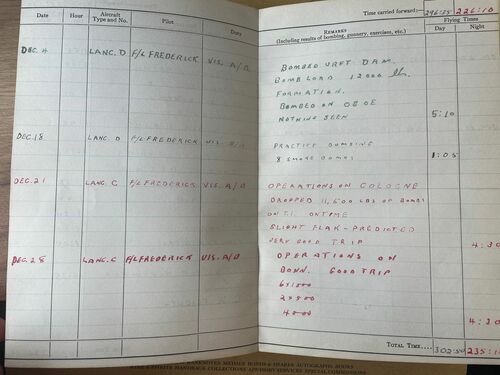 Date Hour Aircraft Type and No. Pilot Duty
Time carried forward:— 296:35 226:10
REMARKS
(Including results of bombing, gunnery, exercises, etc.)
Flying Times
Day Night
DEC. 4 LANC. D F/L FREDERICK VIS. A/B
BOMBED URFT DAM.
BOMB LOAD 12000 lb.
FORMATION.
BOMBED ON OBOE
NOTHING SEEN 5:10
DEC. 18 LANC. D F/L FREDERICK VIS. A/B
PRACTICE BOMBING
8 SMOKE BOMBS 1:05
DEC. 21 LANC. C F/L FREDERICK VIS. A/B
OPERATIONS ON COLOGNE
DROPPED 11,600 LBS OF BOMBS
ON T.I. ONTIME
SLIGHT FLAK - PREDICTED
VERY GOOD TRIP 4:30
DEC. 28 LANC. C F/L FREDERICK VIS. A/B
OPERATIONS ON
BONN. GOOD TRIP
4000 4:30
TOTAL TIME.... 302:50 235:10